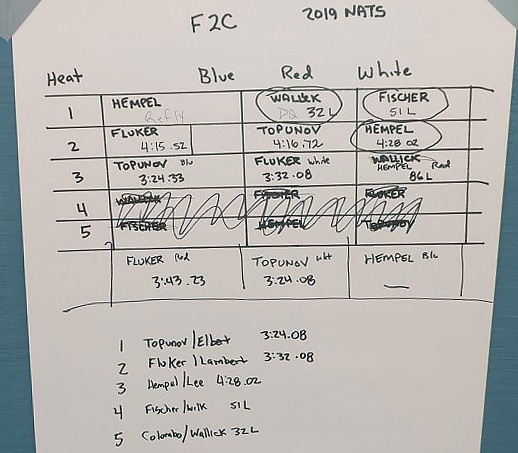 F2C 2019 NATS
Heat Blue Red White
1 HEMPEL Refly WALLICK DQ 32L FISCHER 51L
2 FLUKER 4:15.52 TOPUNOV 4:16.72 HEMPEL 4:28 02
3 TOPUNOV Blu 3:24:33 FLUKER White 3:32.08 WALLICK HEMPEL Red 86L
4 WALLICK FISCHER FLUKER
5 FISCHER HEMPEL TOPUNOV
FLUKER Red 3:43.23 TOPUNOV wht 3:24.08 HEMPEL Blu —
1 Topunov/Elbert 3:24.08
2 Fluker/Lambert 3:32.08
3 Hempel/Lee 4:28.02
4 Fischer/Wilk 51L
5 Colombo/Wallick 32L